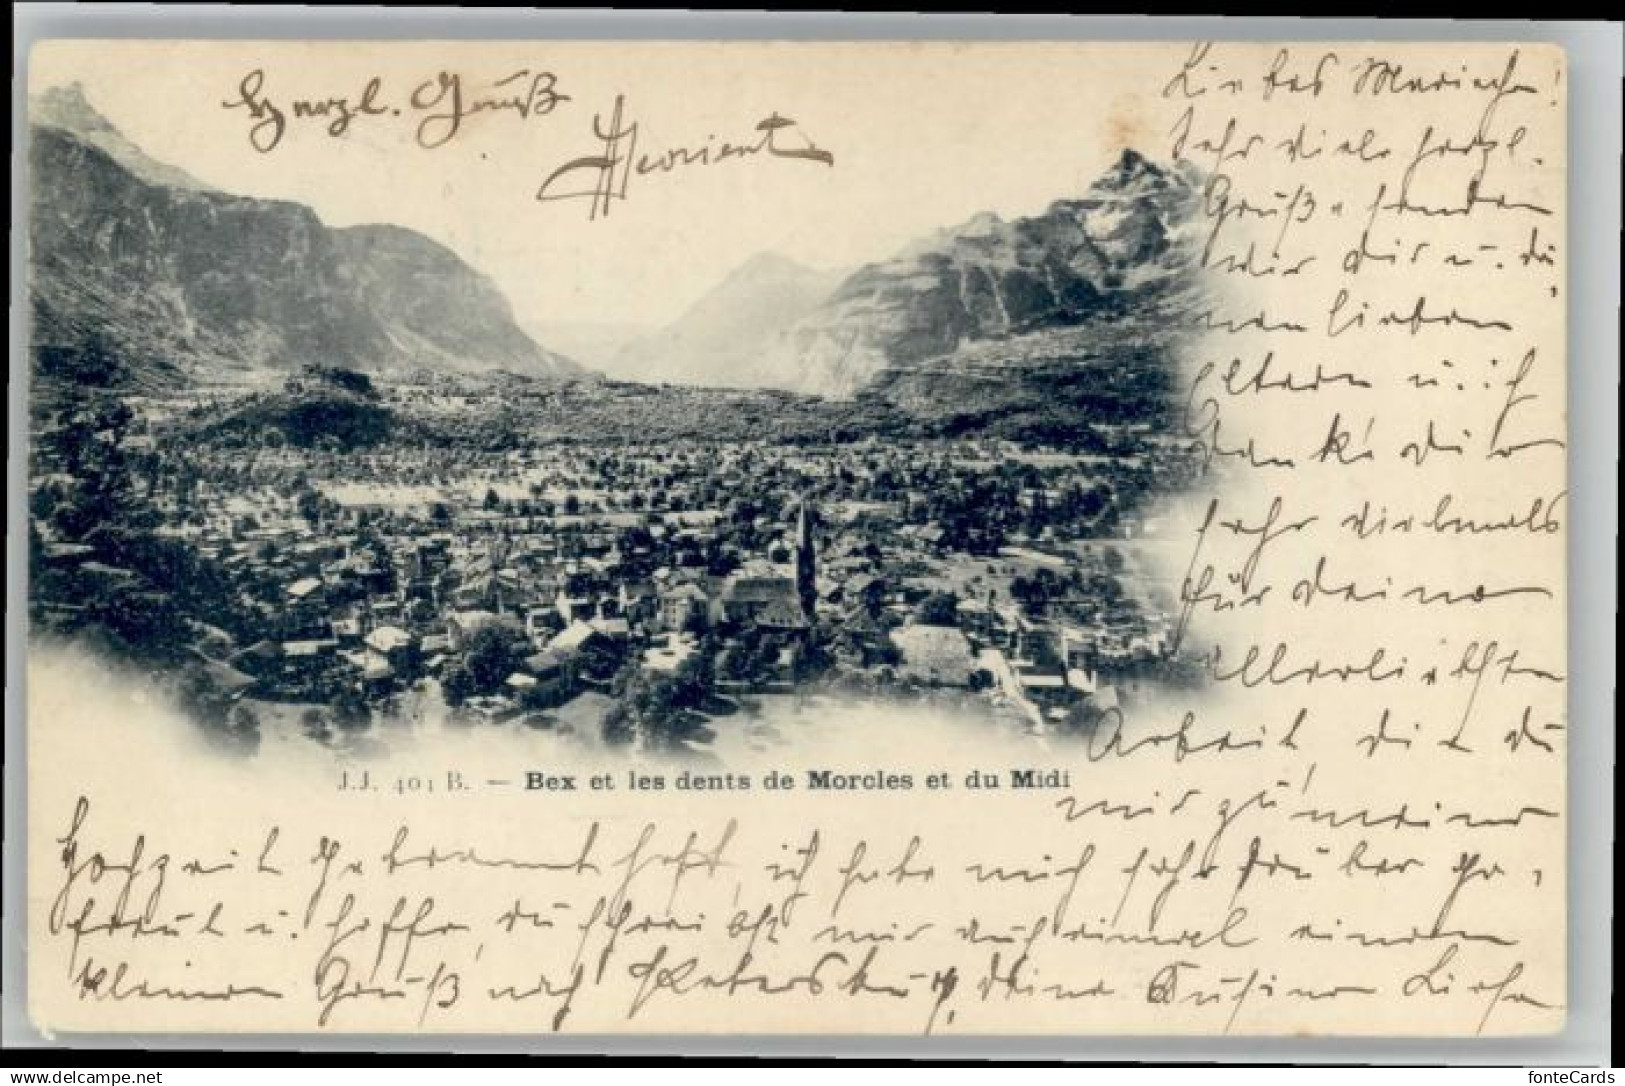 Herzl. Gruß
Liebes Mariechen!
Sehr viele herzl.
Grüße senden
wir dir u. dei-
nen lieben
Eltern u. ich
danke dir
sehr vielmals
für deine
allerliebste
Arbeit, die du
mir zu meiner
J.J. 401 B. — Bex et les dents de Morcles et du Midi
Hochzeit gebrannt hast, ich habe mich sehr darüber ge-
freut u. hoffe, du schreibst mir auch einmal einen
kleinen Gruß nach Petersburg, deine Cusine
fonteCards